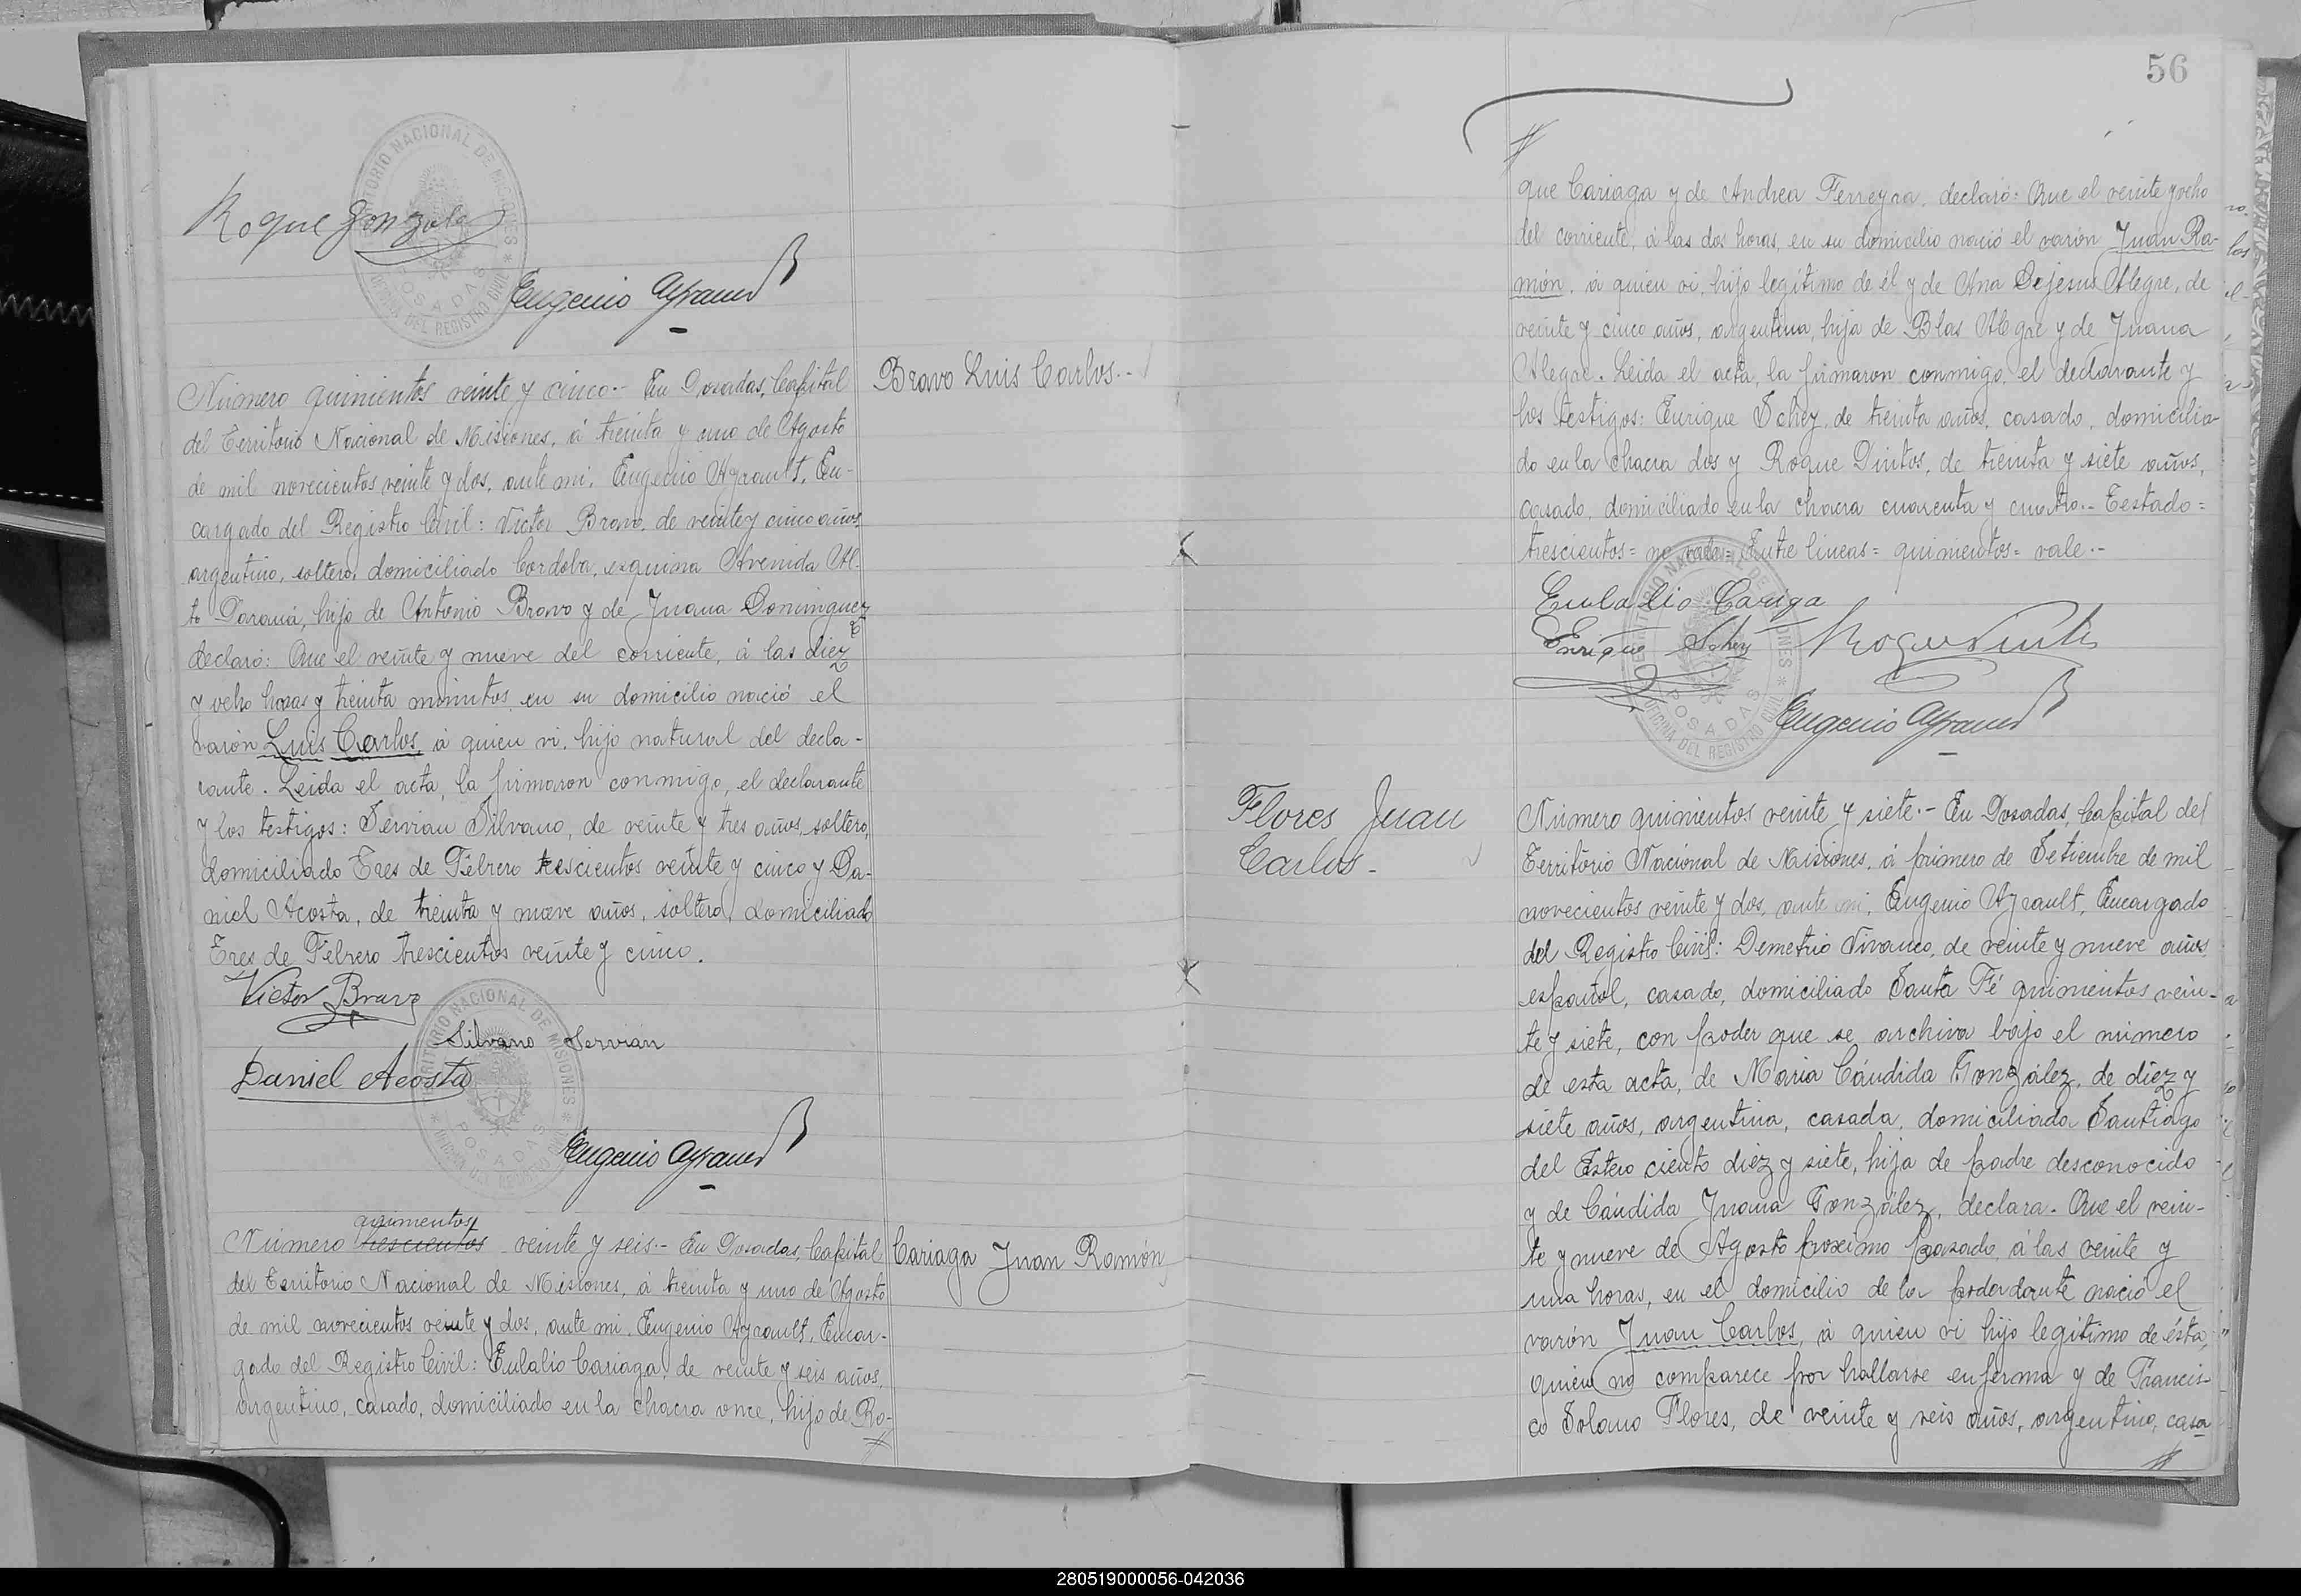 Roque Gonzale
TERRITORIO NACIONAL DE MISIONES
POSADAS
OFICINA DEL REGISTRO CIVIL
Eugenio Ayrault
Número quinientos veinte y cinco.- En Posadas, Capital
Bravo Luis Carlos.-
del Territorio Nacional de Misiones, á treinta y uno de Agosto
de mil novecientos veinte y dos, ante mi, Eugenio Ayrault, En-
cargado del Registro Civil: Victor Bravo, de veinte y cinco años,
argentino, soltero, domiciliado Cordoba, esquina Avenida Al-
to Paraná, hijo de Antonio Bravo y de Juana Dominguez
declaró: Que el veinte y nueve del corriente, á las diez
y ocho horas y treinta minutos, en su domicilio nació el
varón Luis Carlos, á quien vi, hijo natural del decla-
rante. Leida el acta, la firmaron conmigo, el declarante
y los testigos: Servian Silvano, de veinte y tres años, soltero,
domiciliado Tres de Febrero trescientos veinte y cinco y Da-
niel Acosta, de treinta y nueve años, soltero, domiciliado
Tres de Febrero trescientos veinte y cinco.
Victor Bravo
Silvano Servián
Daniel Acosta
TERRITORIO NACIONAL DE MISIONES
POSADAS
OFICINA DEL REGISTRO CIVIL
Eugenio Ayrault
quinientos
Número trescientos veinte y seis.- En Posadas, Capital
Cariaga Juan Ramón
del Territorio Nacional de Misiones, á treinta y uno de Agosto
de mil novecientos veinte y dos, ante mi, Eugenio Ayrault, Encar-
gado del Registro Civil: Eulalio Cariaga, de veinte y seis años,
argentino, casado, domiciliado en la chacra once, hijo de Ro-
56
que Cariaga y de Andrea Ferreyra, declaró: Que el veinte y ocho
del corriente, á las dos horas, en su domicilio nació el varón Juan Ra-
món, á quien vi, hijo legítimo de él y de Ana Dejesus Alegre, de
veinte y cinco años, argentina, hija de Blas Alegre y de Juana
Alegre. Leida el acta, la firmaron conmigo, el declarante y
los testigos: Enrique Schey, de treinta años, casado, domicilia-
do en la chacra dos y Roque Pintos, de treinta y siete años,
casado, domiciliado en la chacra cuarenta y cuatro.- Testado=
trescientos= no vale= Entre lineas= quinientos= vale.-
Eulalio Cariga
Enrique Schey
Roque Pintos
TERRITORIO NACIONAL DE MISIONES
POSADAS
OFICINA DEL REGISTRO CIVIL
Eugenio Ayrault
Flores Juan
Carlos-
Número quinientos veinte y siete.- En Posadas, Capital del
Territorio Nacional de Misiones, á primero de Setiembre de mil
novecientos veinte y dos, ante mi, Eugenio Ayrault, Encargado
del Registro Civil: Demetrio Vivanco, de veinte y nueve años,
español, casado, domiciliado Santa Fé quinientos vein-
te y siete, con poder que se archiva bajo el número
de esta acta, de Maria Cándida González, de diez y
siete años, argentina, casada, domiciliada Santiago
del Estero ciento diez y siete, hija de padre desconocido
y de Cándida Juana González, declara. Que el vein-
te y nueve de Agosto proximo pasado, á las veinte y
una horas, en el domicilio de la poderdante nació el
varón Juan Carlos, á quien vi hijo legítimo de ésta,
quien no comparece por hallarse enferma y de Francis-
co Solano Flores, de veinte y seis años, argentino, casa
280519000056-042036